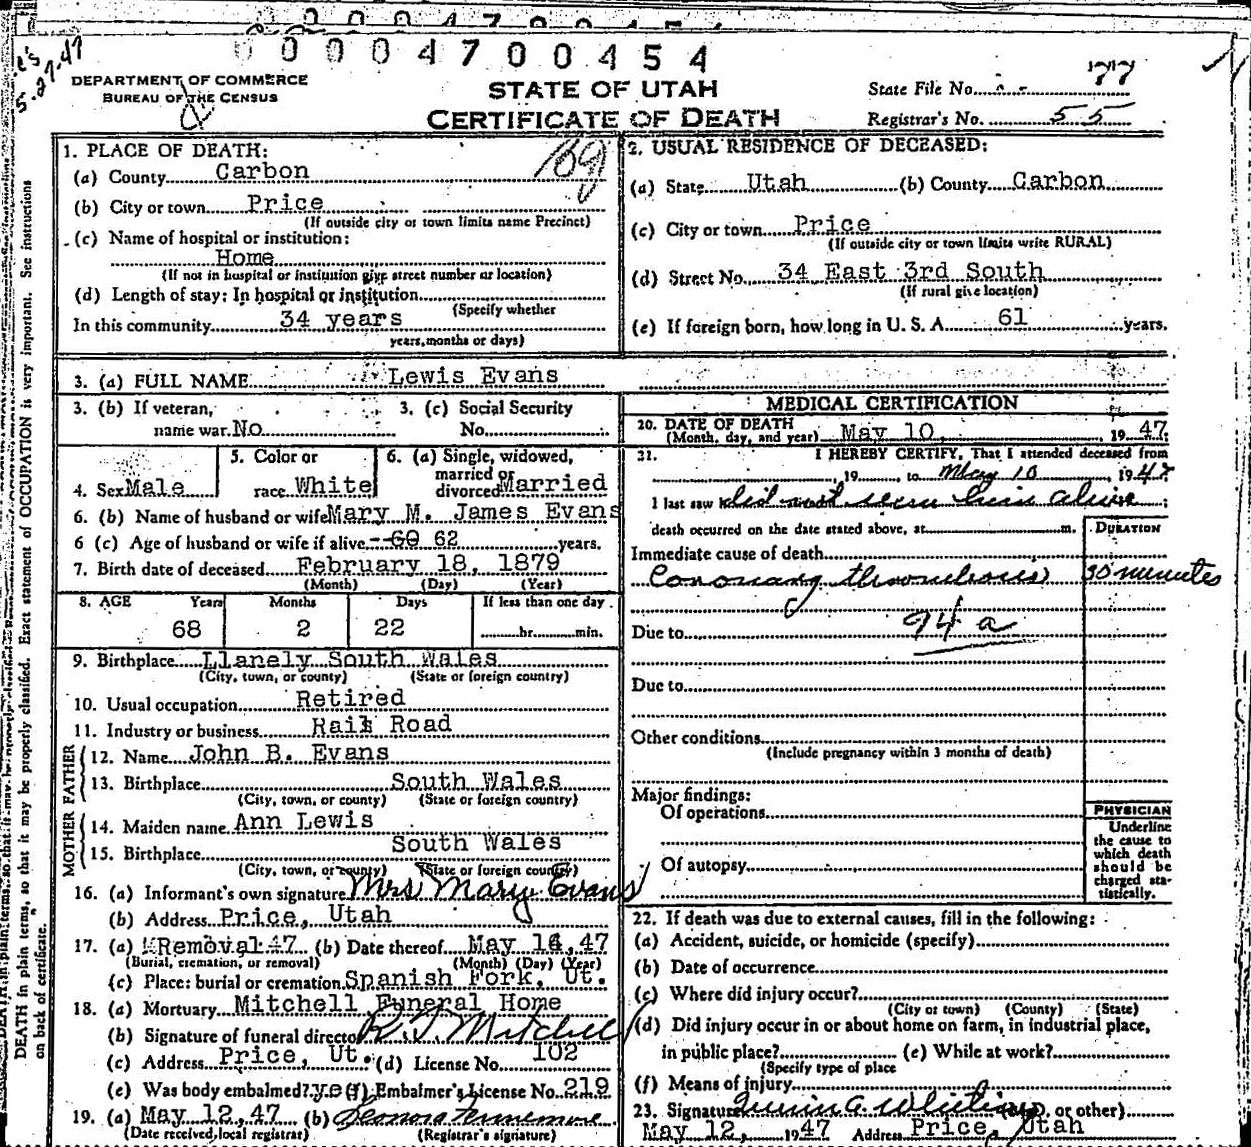 0004700454
5.27.47
DEPARTMENT OF COMMERCE
BUREAU OF THE CENSUS
STATE OF UTAH
CERTIFICATE OF DEATH
State File No. 77
Registrar's No. 55
1. PLACE OF DEATH:
(a) County Carbon
(b) City or town Price
(If outside city or town limits name Precinct)
(c) Name of hospital or institution:
Home
(If not in hospital or institution give street number or location)
(d) Length of stay: In hospital or institution
(Specify whether
In this community 34 years
years, months or days)
2. USUAL RESIDENCE OF DECEASED:
(a) State Utah (b) County Carbon
(c) City or town Price
(If outside city or town limits write RURAL)
(d) Street No. 34 East 3rd South
(If rural give location)
(e) If foreign born, how long in U. S. A. 61 years.
3. (a) FULL NAME Lewis Evans
3. (b) If veteran, 3. (c) Social Security
name war No No.
4. Sex Male
5. Color or
race White
6. (a) Single, widowed,
married or
divorced Married
6. (b) Name of husband or wife Mary M. James Evans
6 (c) Age of husband or wife if alive --60 62 years.
7. Birth date of deceased February 18, 1879
(Month) (Day) (Year)
8. AGE Years Months Days If less than one day
68 2 22 hr. min.
9. Birthplace Llanely South Wales
(City, town, or county) (State or foreign country)
10. Usual occupation Retired
11. Industry or business Rail Road
FATHER
12. Name John B. Evans
13. Birthplace South Wales
(City, town, or county) (State or foreign country)
MOTHER
14. Maiden name Ann Lewis
15. Birthplace South Wales
(City, town, or county) (State or foreign country)
16. (a) Informant's own signature Mrs Mary Evans
(b) Address Price, Utah
17. (a) Removal 47 (b) Date thereof May 14, 47
(Burial, cremation, or removal) (Month) (Day) (Year)
(c) Place: burial or cremation Spanish Fork, Ut.
18. (a) Mortuary Mitchell Funeral Home
(b) Signature of funeral director R. J. Mitchell
(c) Address Price, Ut. (d) License No. 102
(e) Was body embalmed? yes (f) Embalmer's License No. 219
19. (a) May 12, 47 (b) Leonora Fennemore
(Date received local registrar) (Registrar's signature)
MEDICAL CERTIFICATION
20. DATE OF DEATH
(Month, day, and year) May 10, 1947
21. I HEREBY CERTIFY, That I attended deceased from
19, to May 10, 1947
I last saw h did not seen him alive;
death occurred on the date stated above, at m.
DURATION
Immediate cause of death
Coronary thrombosis 30 minutes
Due to 94 a
Due to
Other conditions
(Include pregnancy within 3 months of death)
Major findings:
Of operations
Of autopsy
PHYSICIAN
Underline
the cause to
which death
should be
charged sta-
tistically.
22. If death was due to external causes, fill in the following:
(a) Accident, suicide, or homicide (specify)
(b) Date of occurrence
(c) Where did injury occur?
(City or town) (County) (State)
(d) Did injury occur in or about home on farm, in industrial place,
in public place? (e) While at work?
(Specify type of place
(f) Means of injury
23. Signature (M.D. or other)
May 12, 1947 Address Price, Utah
DEATH in plain terms, so that it may be properly classified. Exact statement of OCCUPATION is very important. See instructions
on back of certificate.